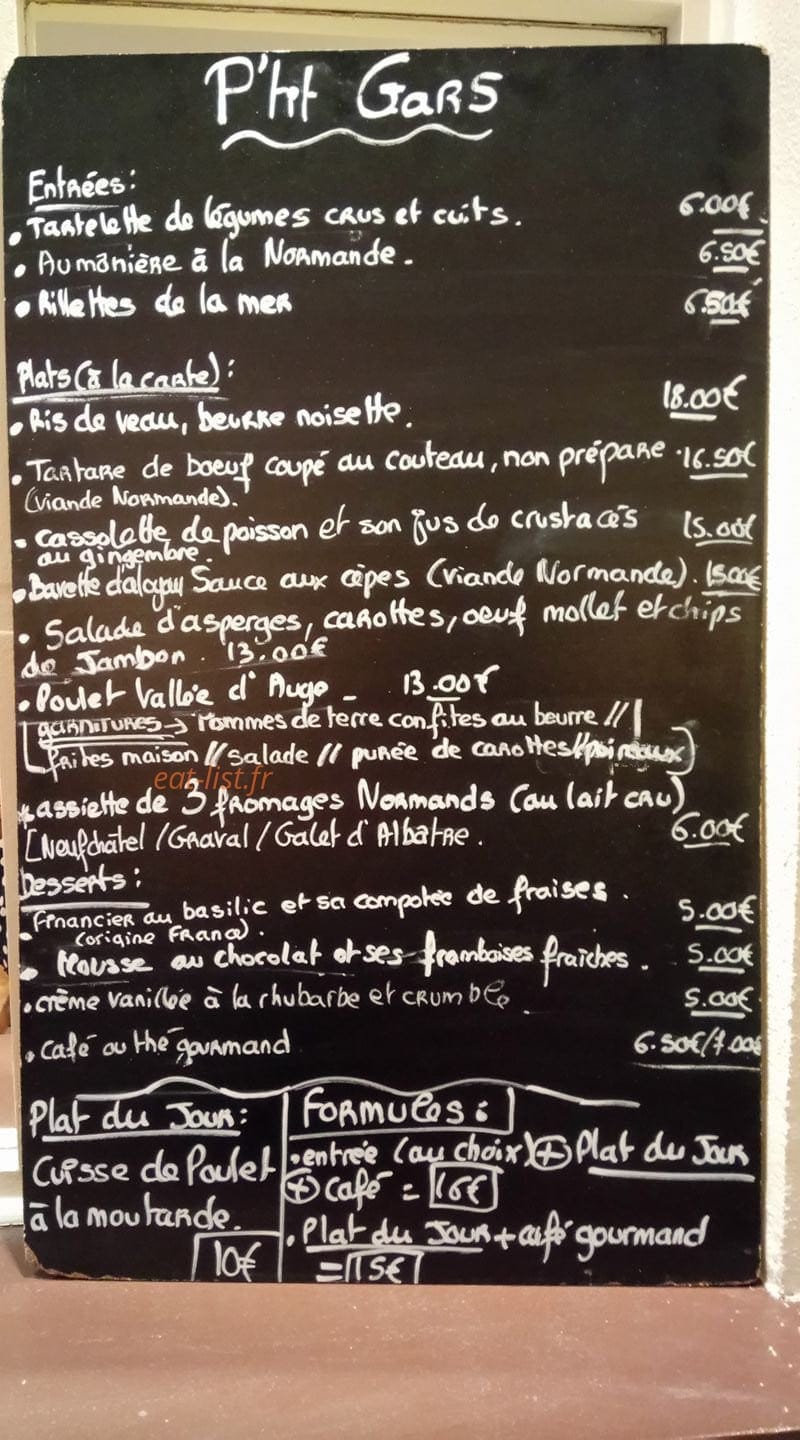 P'tit Gars
Entrées:
• Tartelette de légumes crus et cuits. 6.00€
• Aumônière à la Normande. 6.50€
• Rillettes de la mer 6.50€
Plats (à la carte):
• Ris de veau, beurre noisette. 18.00€
• Tartare de boeuf coupé au couteau, non prépare . 16.50€
(viande Normande).
• cassolette de poisson et son jus de crustacés 15.00€
au gingembre.
• Bavette d'aloyau Sauce aux cèpes (viande Normande). 15.00€
• Salade d'asperges, carottes, oeuf mollet et chips
de Jambon. 13.00€
• Poulet Vallée d'Auge - 13.00€
[garnitures → Pommes de terre confites au beurre //
frites maison // salade // purée de carottes // poireaux]
eat-list.fr
• assiette de 3 fromages Normands (au lait cru)
[Neufchâtel / Graval / Galet d'Albatre. 6.00€
Desserts:
• Financier au basilic et sa compotée de fraises. 5.00€
(origine France).
• Mousse au chocolat et ses framboises fraîches. 5.00€
• crème vanillée à la rhubarbe et crumble. 5.00€
• Café ou thé gourmand 6.50€/7.00€
Plat du Jour:
Cuisse de Poulet
à la moutarde.
10€
Formules:
• entrée (au choix) + Plat du Jour
+ café = 16€
• Plat du Jour + café gourmand
= 15€